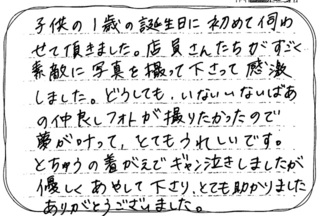 子供の1歳の誕生日に初めて伺わ
せて頂きました。店員さんたちがすごく
素敵に写真を撮って下さって感激
しました。どうしても、いないいないばあ
の仲良しフォトが撮りたかったので
夢が叶って、とてもうれしいです。
とちゅうの着がえでギャン泣きしましたが
優しくあやして下さり、とても助かりました
ありがとうございました。